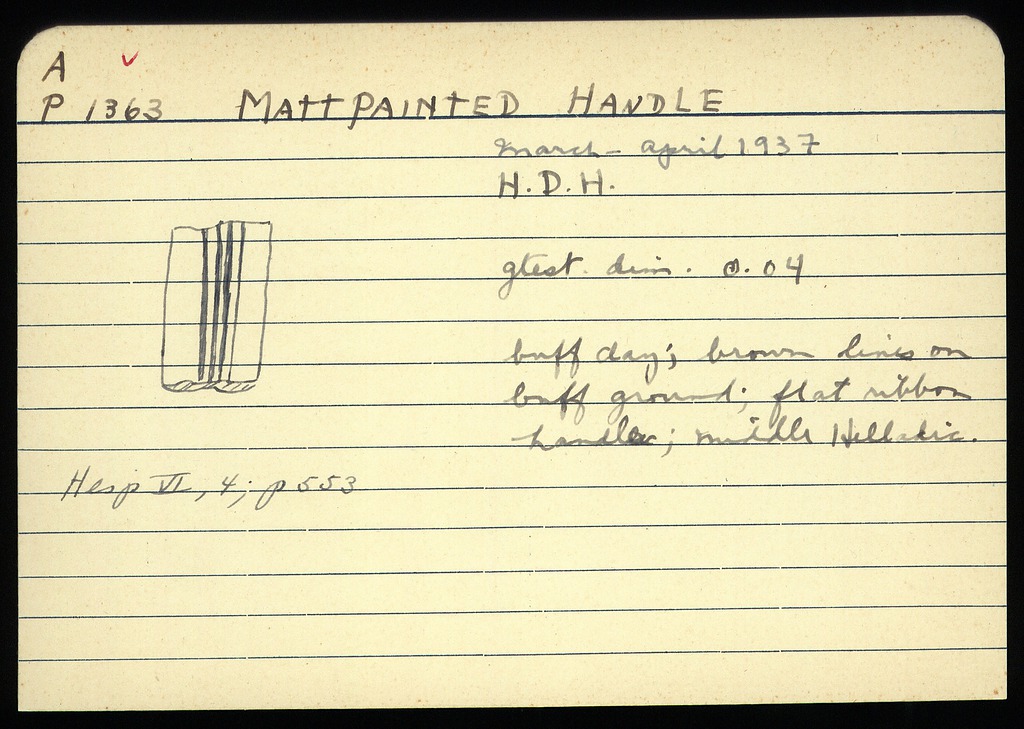 A
P 1363 MATTPAINTED HANDLE
march - april 1937
H.D.H.
gtest. dim. 0.04
buff clay; brown lines on
buff ground; flat ribbon
handle; middle Helladic.
Hesp VI, 4; p 553